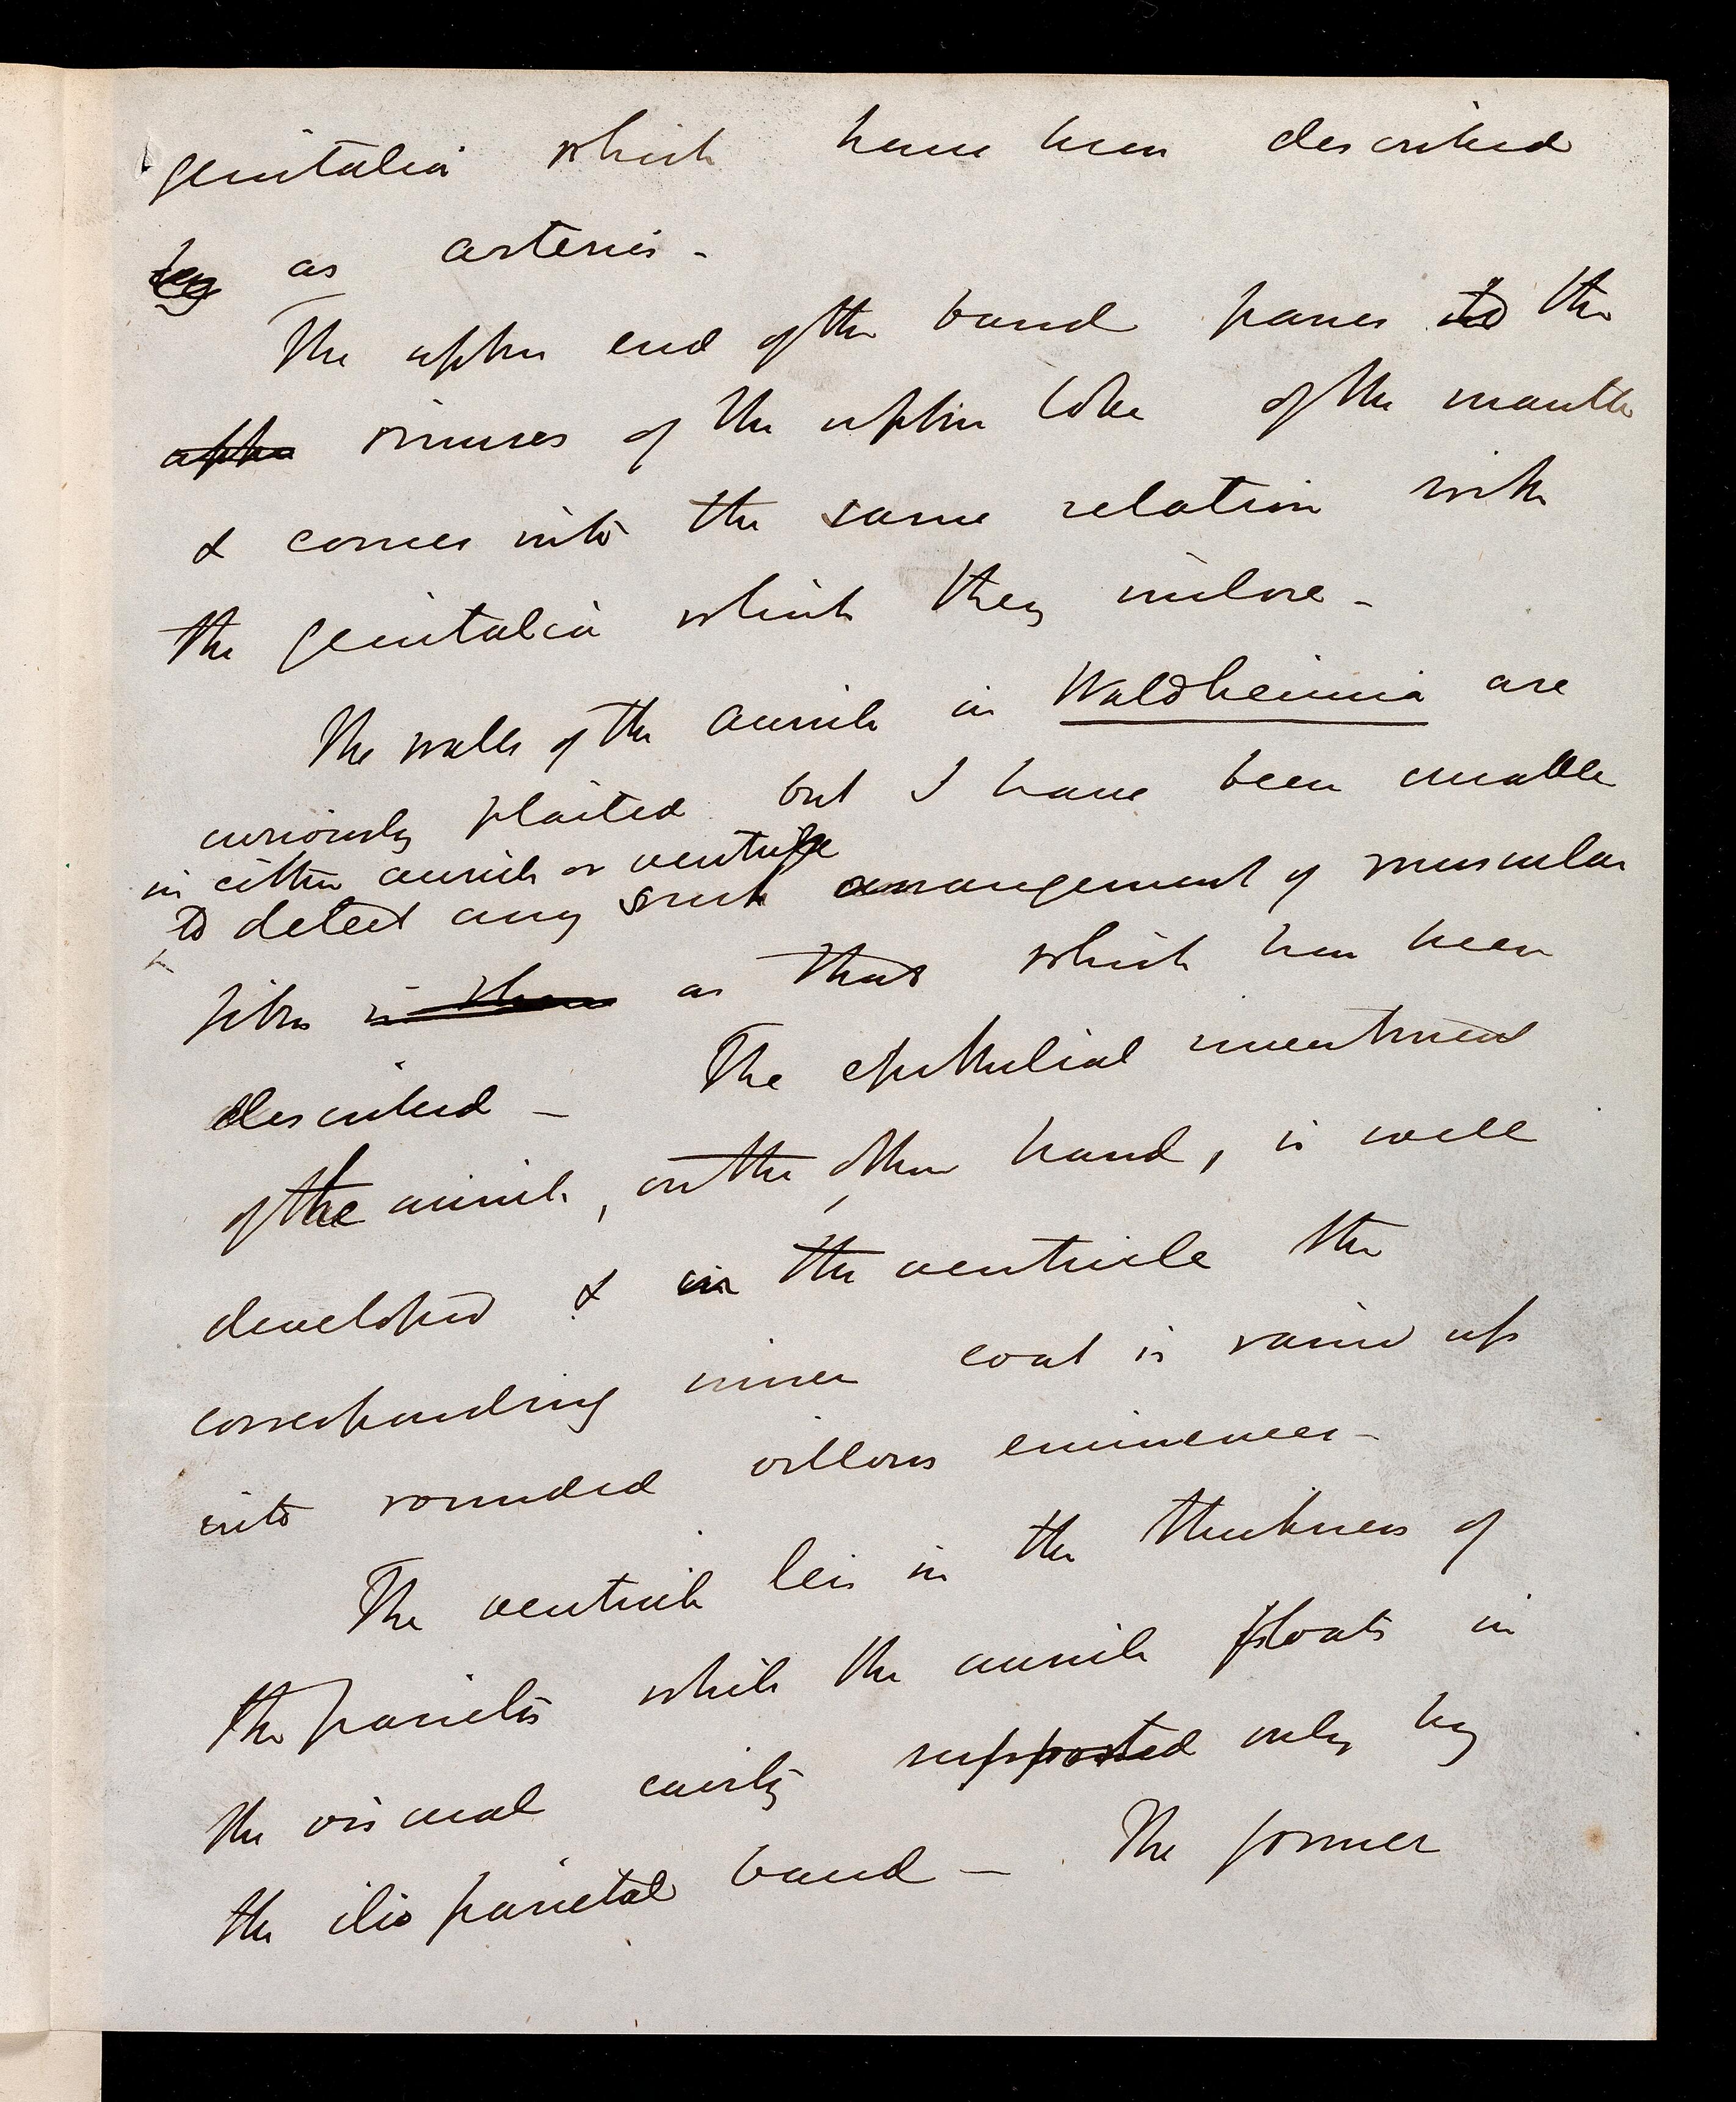 genitalia which have been described
by as arteries -
The upper end of the band passes to the
upper sinuses of the upper lobe of the mantle
& comes into the same relation with
the genitalia which they inclose -
The walls of the auricle in Waldheimia are
curiously plaited but I have been unable
in either auricle or ventricle
to detect any such arrangement of muscular
fibre in them as that which has been
described - The epithelial investment
of the auricle, on the other hand, is well
developed & in the ventricle the
corresponding inner coat is raised up
into rounded villous eminences -
The ventricle lies in the thickness of
the parietes while the auricle floats in
the visceral cavity supported only by
the ilio parietal band - The former